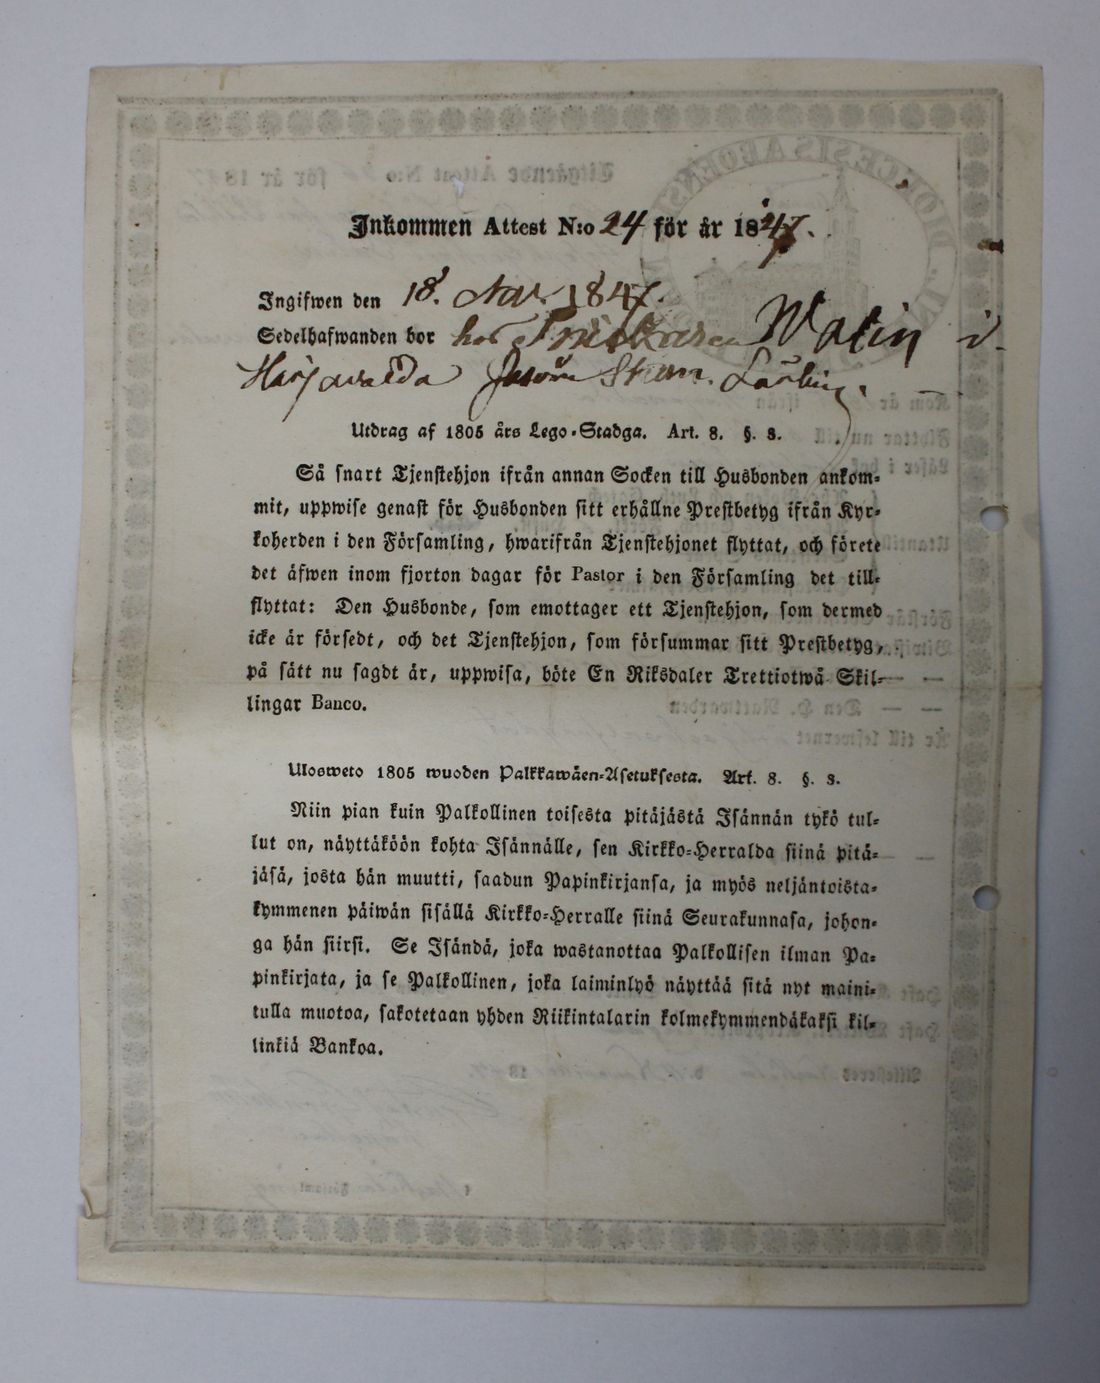 Inkommen Attest N:o 24 för år 1847.
Ingifwen den 18. Nov. 1847.
Sedelhafwanden bor hos Watin i
Harjavalda
Utdrag af 1805 års Lego-Stadga. Art. 8. §. 3.
Så snart Tjenstehjon ifrån annan Socken till Husbonden ankom-
mit, uppwise genast för Husbonden sitt erhållne Prestbetyg ifrån Kyr-
koherden i den Församling, hwarifrån Tjenstehjonet flyttat, och förete
det äfwen inom fjorton dagar för Pastor i den Församling det till-
flyttat: Den Husbonde, som emottager ett Tjenstehjon, som dermed
icke är försedt, och det Tjenstehjon, som försummar sitt Prestbetyg,
på sätt nu sagdt är, uppwisa, böte En Riksdaler Trettiotwå Skil-
lingar Banco.
Ulosweto 1805 wuoden Palkkawäen-Asetuksesta. Art. 8. §. 3.
Niin pian kuin Palkollinen toisesta pitäjästä Isännän tykö tul-
lut on, näyttäköön kohta Isännälle, sen Kirkko-Herralda siinä pitä-
jäsä, josta hän muutti, saadun Papinkirjansa, ja myös neljäntoista-
kymmenen päiwän sisällä Kirkko-Herralle siinä Seurakunnasa, johon-
ga hän siirsi. Se Isändä, joka wastanottaa Palkollisen ilman Pa-
pinkirjata, ja se Palkollinen, joka laiminlyö näyttää sitä nyt maini-
tulla muotoa, sakotetaan yhden Riikintalarin kolmekymmendäkaksi kil-
linkiä Bankoa.